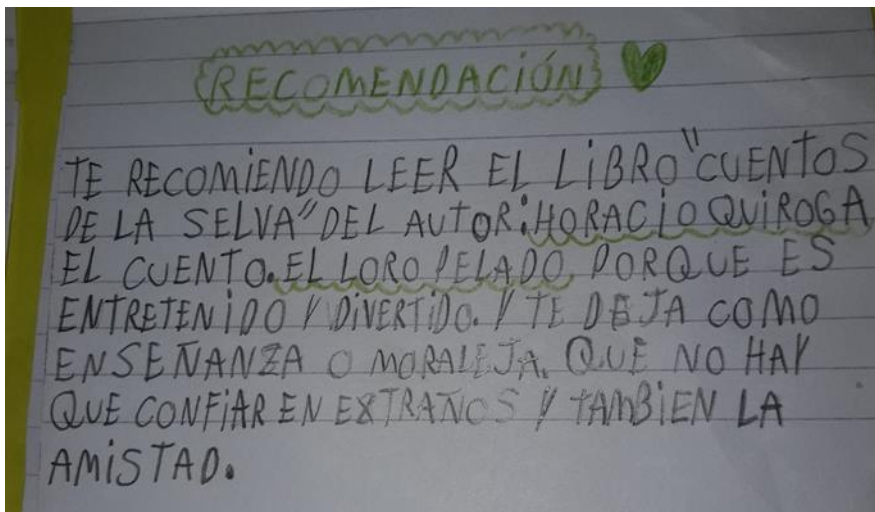 RECOMENDACIÓN
TE RECOMIENDO LEER EL LIBRO "CUENTOS
DE LA SELVA" DEL AUTOR: HORACIO QUIROGA
EL CUENTO. EL LORO PELADO PORQUE ES
ENTRETENIDO Y DIVERTIDO. Y TE DEJA COMO
ENSEÑANZA O MORALEJA. QUE NO HAY
QUE CONFIAR EN EXTRAÑOS Y TAMBIEN LA
AMISTAD.